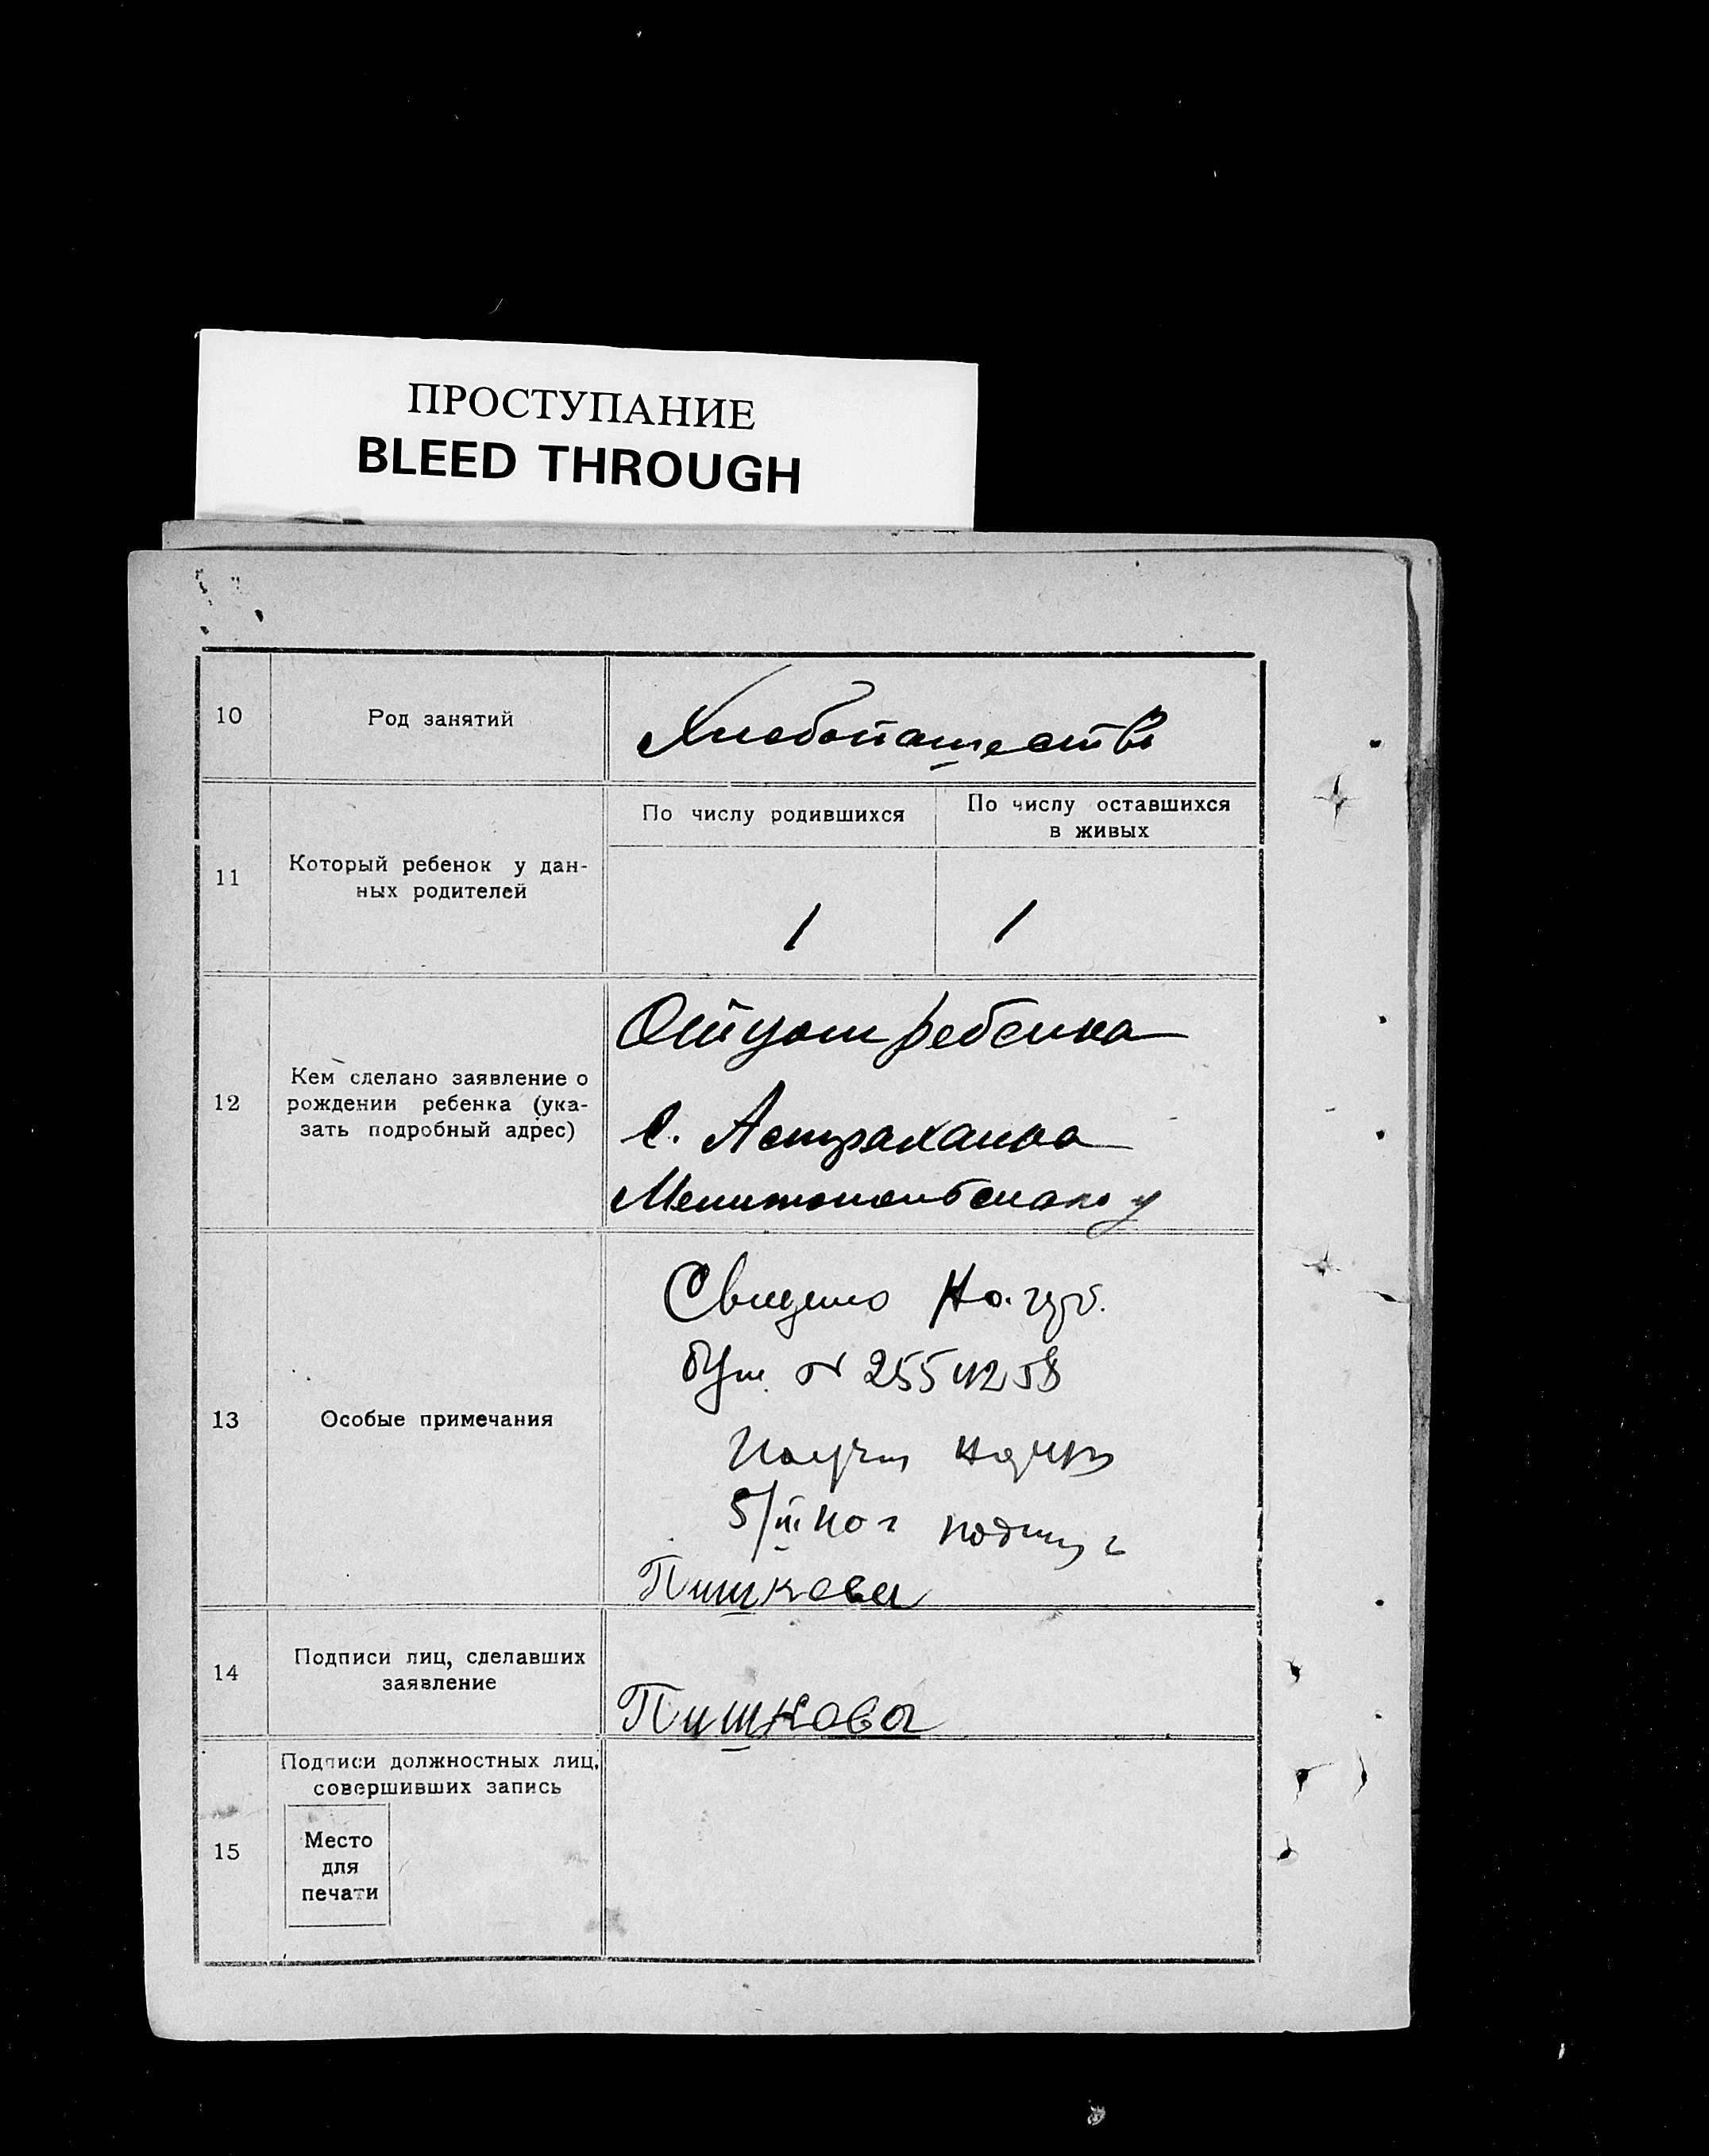 ПРОСТУПАНИЕ
BLEED THROUGH
10
Род занятий
Хлебопашество
11
Который ребенок у дан-
ных родителей
По числу родившихся
По числу оставшихся
в живых
1
1
12
Кем сделано заявление о
рождении ребенка (ука-
зать подробный адрес)
Отцом ребенка
с. Астраханка
Мелитопольского у
13
Особые примечания
№ 2554258
5/III 40 г
Пишкова
14
Подписи лиц, сделавших
заявление
Пишкова
15
Подписи должностных лиц,
совершивших запись
Место
для
печати